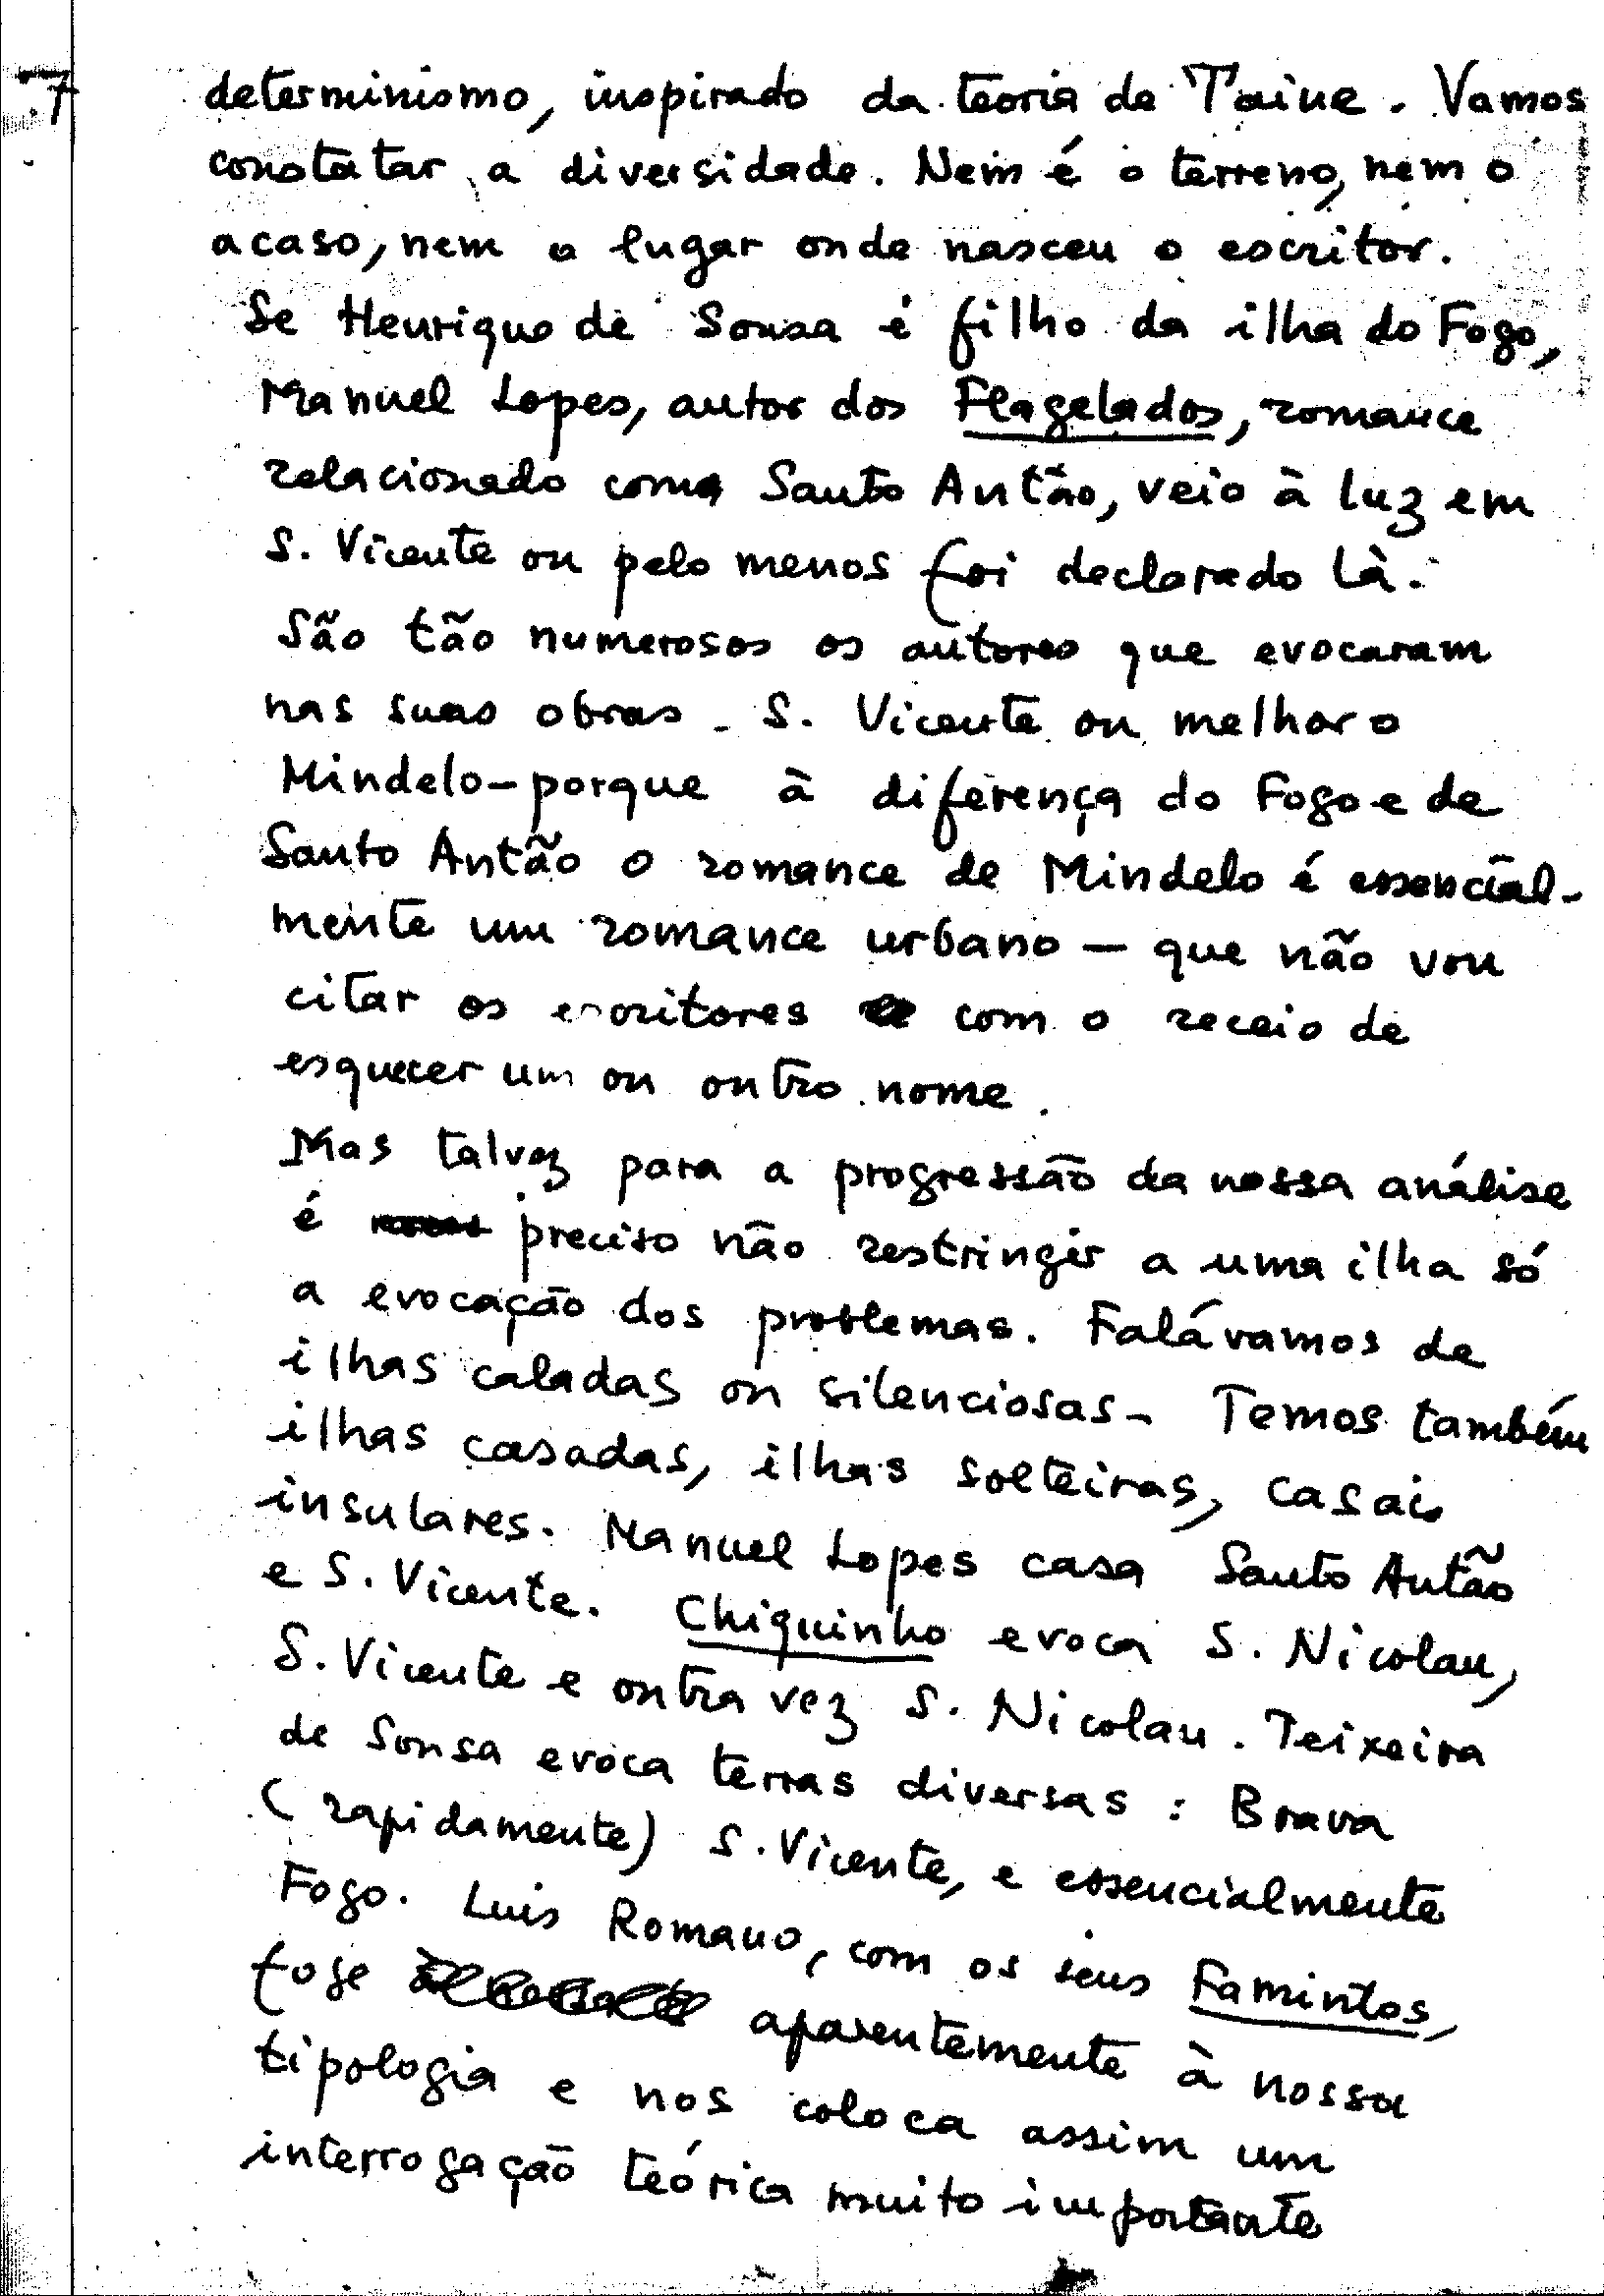 7
determinismo, inspirado da teoria de Taine. Vamos
constatar a diversidade. Nem é o terreno, nem o
acaso, nem o lugar onde nasceu o escritor.
Se Henrique de Sousa é filho da ilha do Fogo,
Manuel Lopes, autor dos Flagelados, romance
relacionado com Santo Antão, veio à luz em
S. Vicente ou pelo menos foi declarado là.
São tão numerosos os autores que evocaram
nas suas obras - S. Vicente ou melhor o
Mindelo - porque à diferença do Fogo e de
Santo Antão o romance de Mindelo é essencial-
mente um romance urbano — que não vou
citar os escritores com o receio de
esquecer um ou outro nome.
Mas talvez para a progressão da nossa análise
é preciso não restringir a uma ilha só
a evocação dos problemas. Falávamos de
ilhas caladas ou silenciosas - Temos também
ilhas casadas, ilhas solteiras, casais
insulares. Manuel Lopes casa Santo Antão
e S. Vicente. Chiquinho evoca S. Nicolau,
S. Vicente e outra vez S. Nicolau. Teixeira
de Sousa evoca terras diversas : Brava
(rapidamente) S. Vicente, e essencialmente
Fogo. Luis Romano, com os seus Famintos,
foge aparentemente à nossa
tipologia e nos coloca assim um
interrogação teórica muito importante